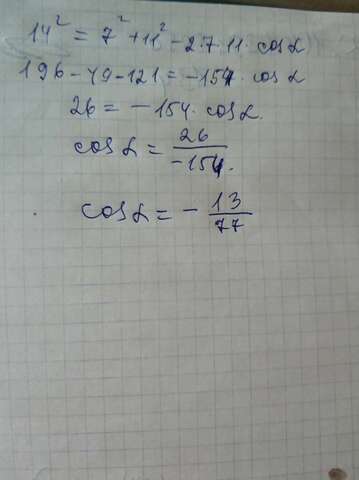 14² = 7² + 11² - 2·7·11· cos α
196 - 49 - 121 = -154 · cos α
26 = -154 · cos α.
cos α = 26/-154.
cos α = - 13/77